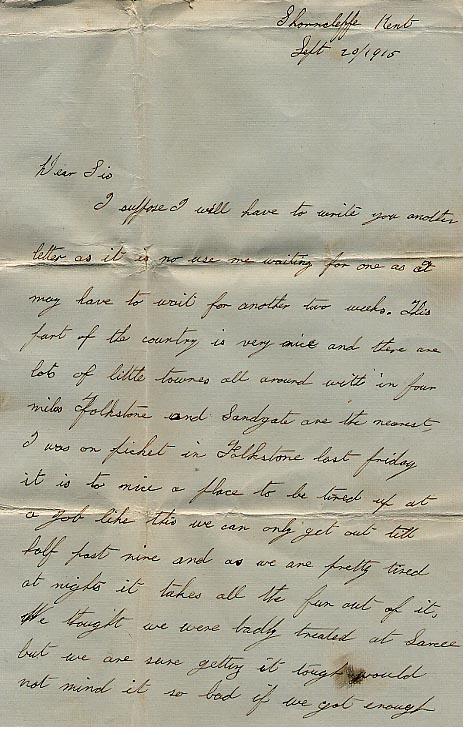 Shorncliffe Kent
Sept 20/1915
Dear Sis
I suppose I will have to write you another
letter as it is no use me waiting for one as it
may have to wait for another two weeks. This
part of the country is very nice and there are
lots of little townes all around with in four
miles Folkstone and Sandgate are the nearest,
I was on picket in Folkstone last friday
it is to nice a place to be tired up at
a job like this we can only get out till
half past nine and as we are pretty tired
at nights it takes all the fun out of it,
We thought we were badly treated at Sarcee
but we are sure getting it tough would
not mind it so bad if we got enough